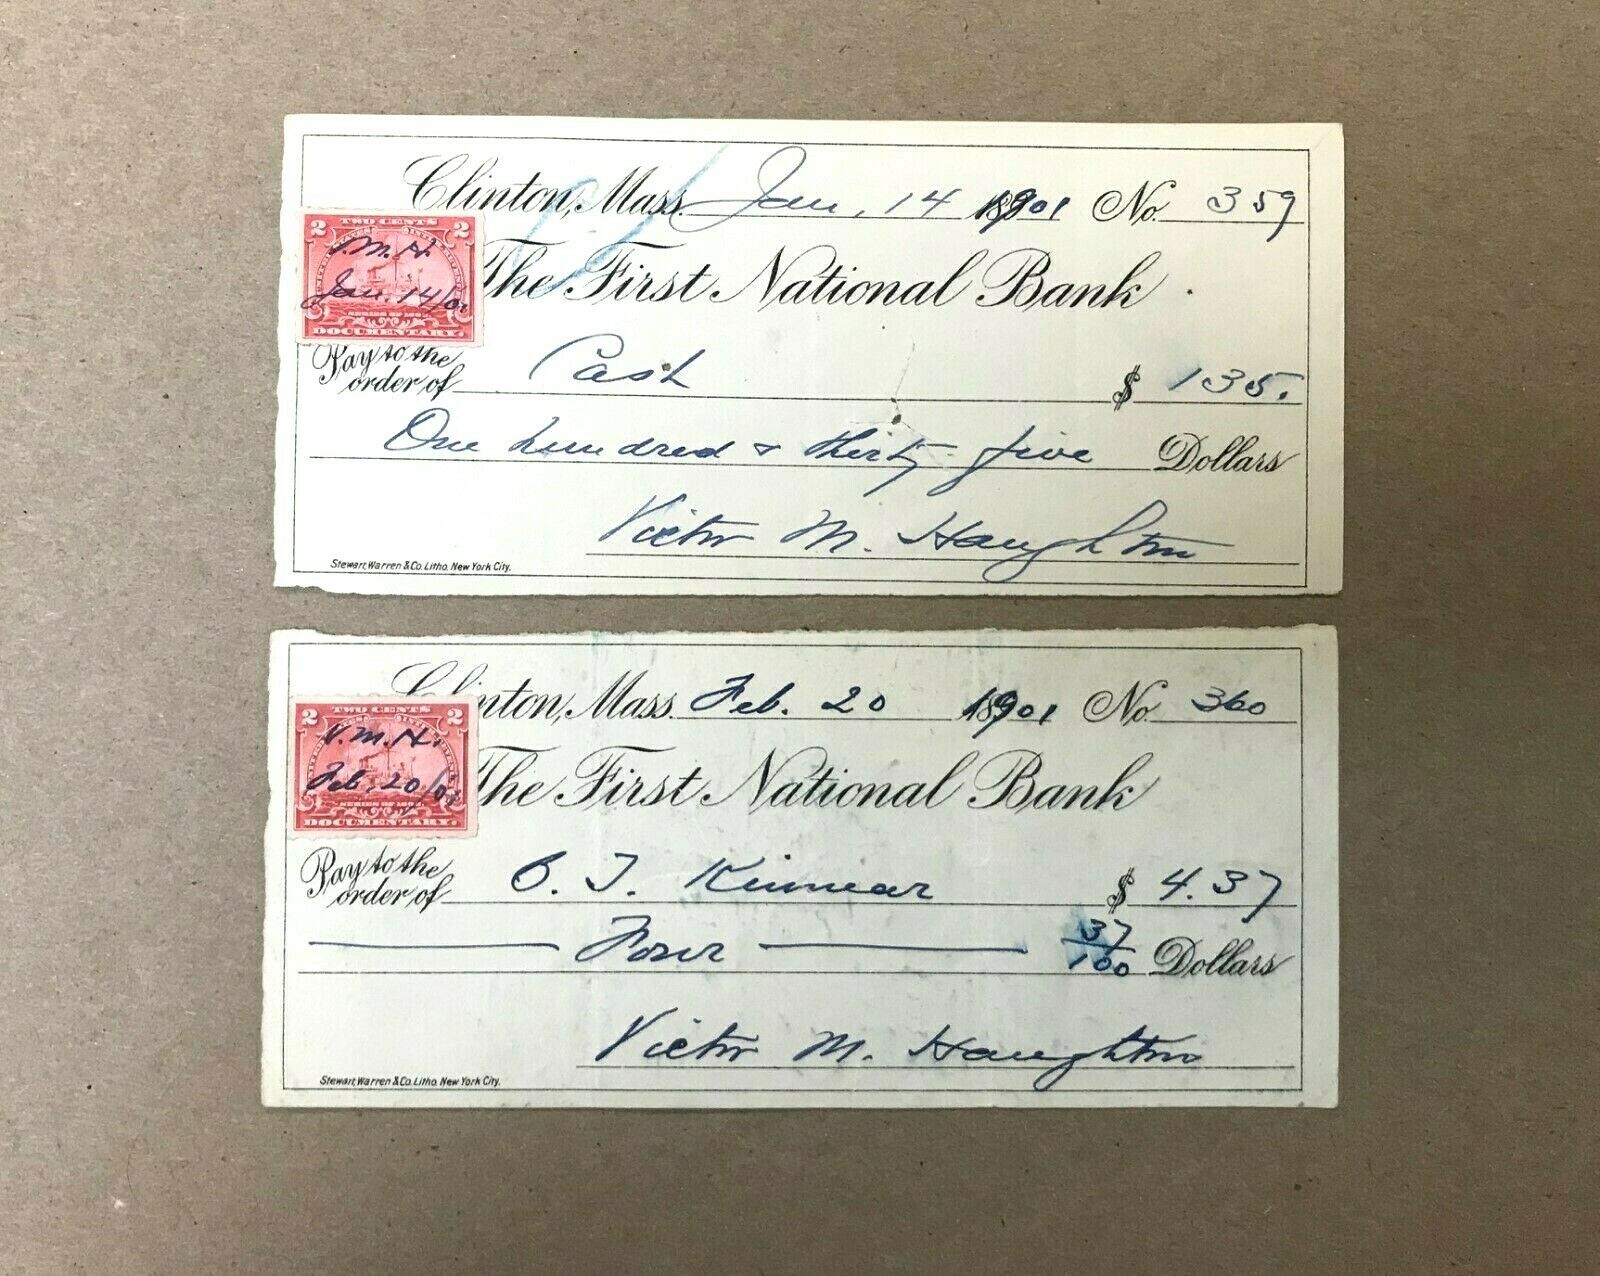 Clinton, Mass. Jan. 14 1901 No. 359
2 TWO CENTS 2
V. M. H.
Jan. 14/01
SERIES OF 1898
DOCUMENTARY.
The First National Bank
Pay to the order of Cash $ 135.
One hundred & thirty five Dollars
Victor M. Haughton
Stewart, Warren & Co. Litho. New York City.
Clinton, Mass. Feb. 20 1901 No. 360
2 TWO CENTS 2
V. M. H.
Feb. 20/01
SERIES OF 1898
DOCUMENTARY.
The First National Bank
Pay to the order of T. Kinnear $ 4.37
Four 37/100 Dollars
Victor M. Haughton
Stewart, Warren & Co. Litho. New York City.